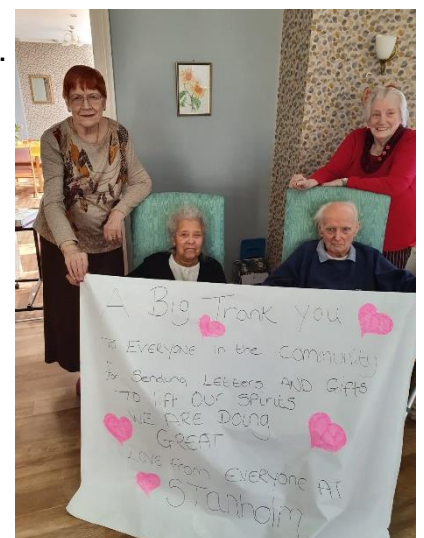 A Big Thank you
To EVERYONE in the community
for Sending LETTERS AND Gifts
TO lift OUR SPirits
WE ARE DOing
GREAT
LOVE from EVERYONE AT
STanholm